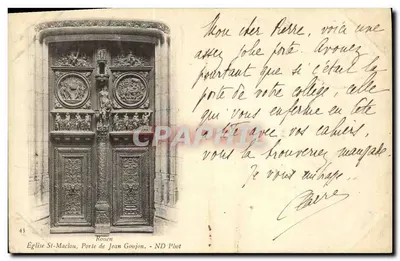 Mon cher Pierre, voici une
assez jolie porte. Avouez
pourtant que si c'était la
porte de votre collège, celle
qui vous enferme en tête
à tête avec vos cahiers,
vous la trouveriez
Je vous
Claire
CPARTA
45
Rouen
Église St-Maclou, Porte de Jean Goujon. - ND Phot